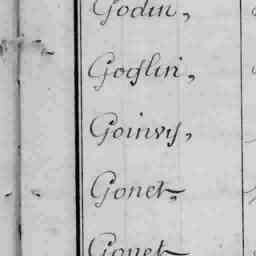 Godin,
Goglin,
Goinvy,
Gonet,
Gonet